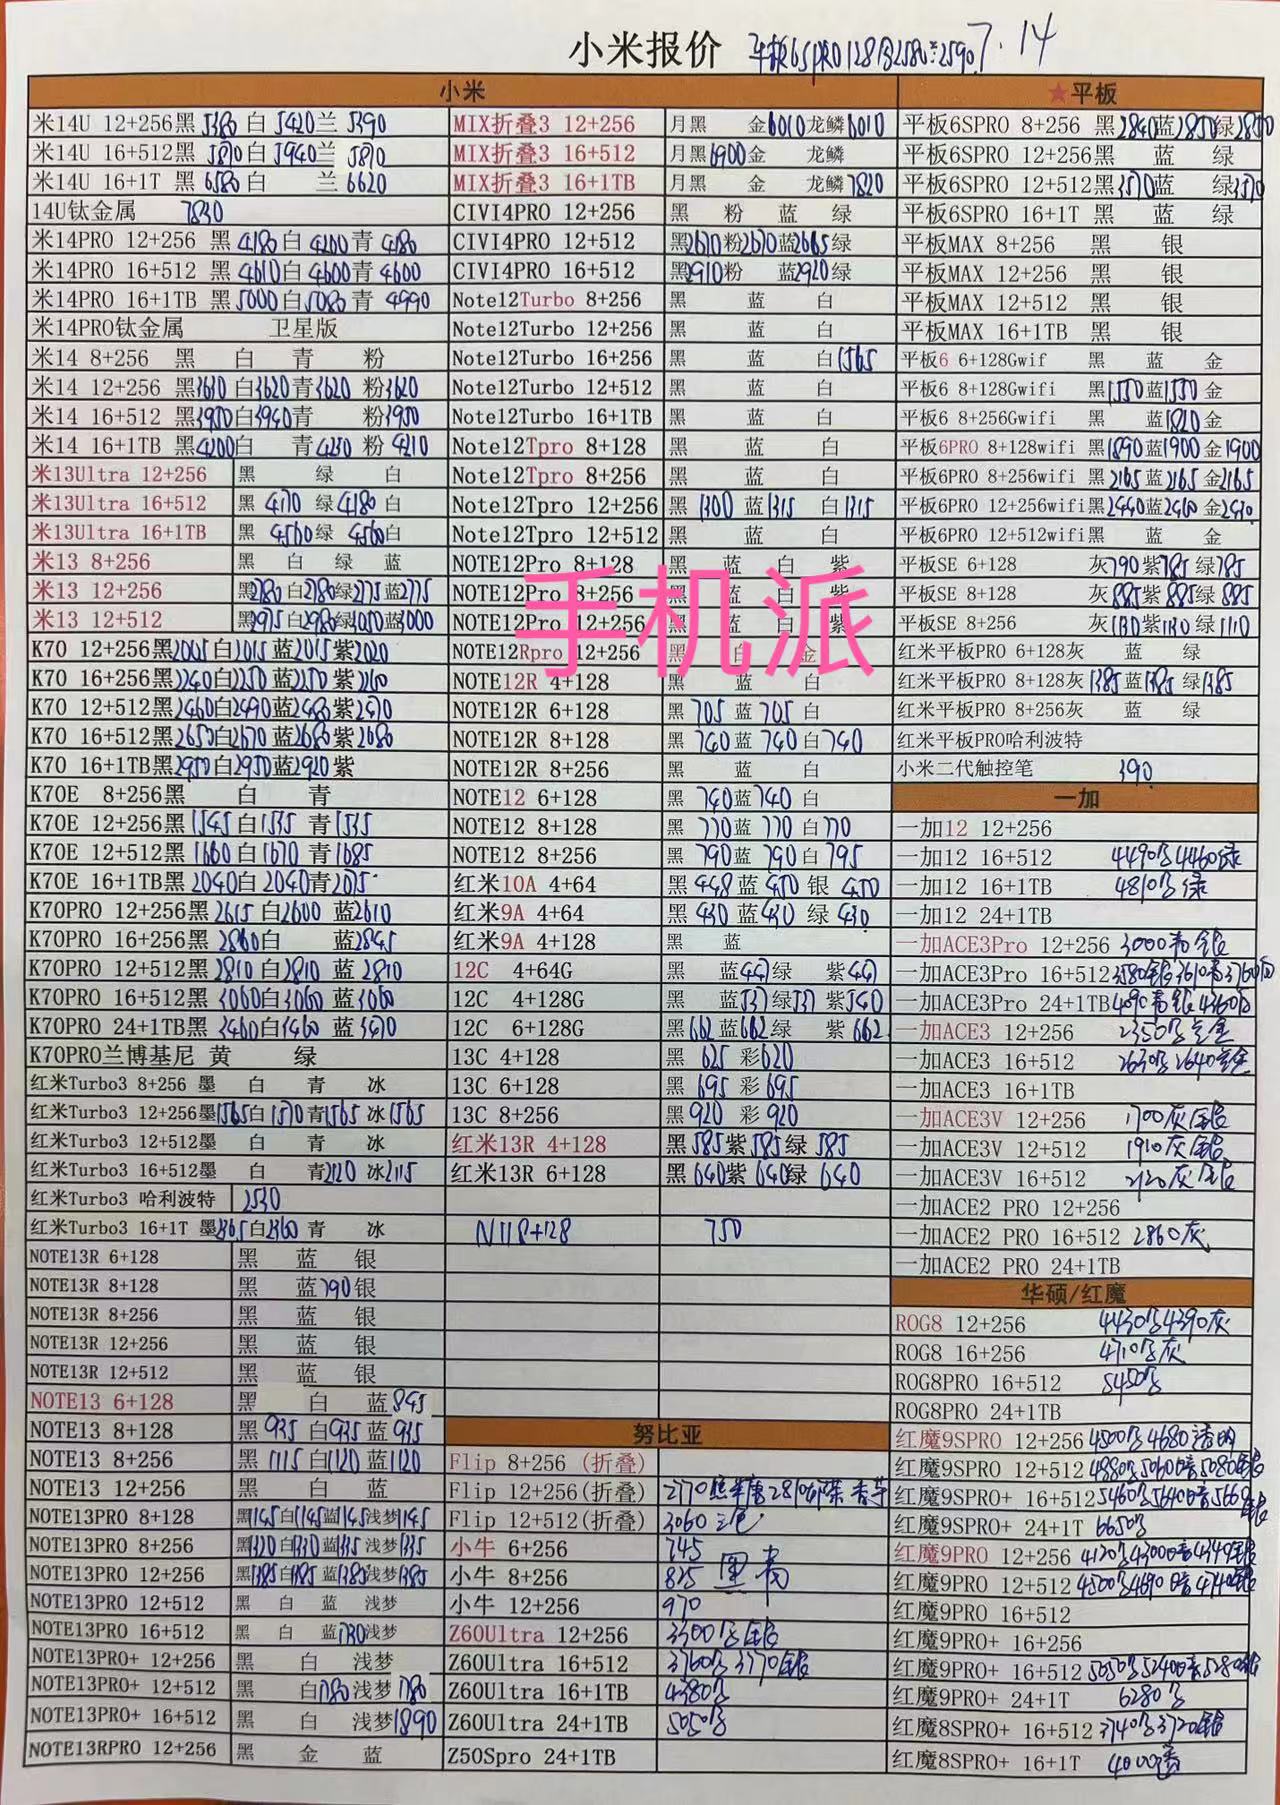 小米报价 平板6SPRO128G2580 2590 7.14
小米
米14U 12+256黑5380 白5420兰5390
米14U 16+512黑5870白5940兰5870
米14U 16+1T 黑6580白 兰6620
14U钛金属 7830
米14PRO 12+256 黑4180白4200青4180
米14PRO 16+512 黑4610白4600青4600
米14PRO 16+1TB 黑5000白5080青4990
米14PRO钛金属 卫星版
米14 8+256 黑 白 青 粉
米14 12+256黑3630白3620青3620 粉3620
米14 16+512 黑3950白3940青 粉3950
米14 16+1TB 黑4200白 青4230 粉4210
米13Ultra 12+256 黑 绿 白
米13Ultra 16+512 黑 4170 绿4180白
米13Ultra 16+1TB 黑 4560绿 4560白
米13 8+256 黑 白 绿 蓝
米13 12+256 黑2780白2780绿2775蓝2775
米13 12+512 黑2975白2980绿3050蓝3000
K70 12+256黑2005白2015蓝2015紫2020
K70 16+256黑2240白2250蓝2250紫2260
K70 12+512黑2460白2490蓝2480紫2470
K70 16+512黑2650白2670蓝2680紫2680
K70 16+1TB黑2950白2950蓝2920紫
K70E 8+256黑 白 青
K70E 12+256黑1545白1535 青1535
K70E 12+512黑1660白1670 青1685
K70E 16+1TB黑2040白2040青2075
K70PRO 12+256黑2615白2600 蓝2610
K70PRO 16+256黑2860白 蓝2845
K70PRO 12+512黑2810白2810 蓝2810
K70PRO 16+512黑3060白3060 蓝3060
K70PRO 24+1TB黑3460白3460 蓝3470
K70PRO兰博基尼 黄 绿
红米Turbo3 8+256 墨 白 青 冰
红米Turbo3 12+256墨1565白1570青1565 冰1565
红米Turbo3 12+512墨 白 青 冰
红米Turbo3 16+512墨 白 青2120冰2115
红米Turbo3 哈利波特 2530
红米Turbo3 16+1T 墨2365白2360 青 冰
NOTE13R 6+128 黑 蓝 银
NOTE13R 8+128 黑 蓝790银
NOTE13R 8+256 黑 蓝 银
NOTE13R 12+256 黑 蓝 银
NOTE13R 12+512 黑 蓝 银
NOTE13 6+128 黑 白 蓝845
NOTE13 8+128 黑935 白935蓝935
NOTE13 8+256 黑1115白1120蓝1120
NOTE13 12+256 黑 白 蓝
NOTE13PRO 8+128 黑1145白1145蓝1145浅梦1145
NOTE13PRO 8+256 黑1320白1330蓝1335浅梦1335
NOTE13PRO 12+256 黑1385白1385蓝1385浅梦1385
NOTE13PRO 12+512 黑 白 蓝 浅梦
NOTE13PRO 16+512 黑 白 蓝1730浅梦
NOTE13PRO+ 12+256 黑 白 浅梦
NOTE13PRO+ 12+512 黑 白1780浅梦1780
NOTE13PRO+ 16+512 黑 白 浅梦1890
NOTE13RPRO 12+256 黑 金 蓝
MIX折叠3 12+256 月黑 金6010龙鳞6010
MIX折叠3 16+512 月黑6900金 龙鳞
MIX折叠3 16+1TB 月黑 金 龙鳞7820
CIVI4PRO 12+256 黑 粉 蓝 绿
CIVI4PRO 12+512 黑2670粉2670蓝2665绿
CIVI4PRO 16+512 黑2910粉 蓝2920绿
Note12Turbo 8+256 黑 蓝 白
Note12Turbo 12+256 黑 蓝 白
Note12Turbo 16+256 黑 蓝 白1565
Note12Turbo 12+512 黑 蓝 白
Note12Turbo 16+1TB 黑 蓝 白
Note12Tpro 8+128 黑 蓝 白
Note12Tpro 8+256 黑 蓝 白
Note12Tpro 12+256 黑1300 蓝1315 白1315
Note12Tpro 12+512 黑 蓝 白
NOTE12Pro 8+128 黑 蓝 白 紫
NOTE12Pro 8+256 黑 蓝 白 紫
NOTE12Pro 12+256 黑 蓝 白 紫
NOTE12Rpro 12+256 黑 白 金
手机派
NOTE12R 4+128 黑 蓝 白
NOTE12R 6+128 黑 705 蓝705白
NOTE12R 8+128 黑 740蓝 740白740
NOTE12R 8+256 黑 蓝 白
NOTE12 6+128 黑 740蓝740 白
NOTE12 8+128 黑 770蓝 770 白770
NOTE12 8+256 黑 790蓝 790白 795
红米10A 4+64 黑448蓝450 银 450
红米9A 4+64 黑430 蓝430 绿 430
红米9A 4+128 黑 蓝
12C 4+64G 黑 蓝447绿 紫447
12C 4+128G 黑 蓝537绿537紫540
12C 6+128G 黑662蓝662绿 紫662
13C 4+128 黑 625 彩620
13C 6+128 黑 695 彩695
13C 8+256 黑920 彩920
红米13R 4+128 黑585紫585绿585
红米13R 6+128 黑640紫640绿640
N11 8+128 750
努比亚
Flip 8+256 (折叠)
Flip 12+256(折叠)
Flip 12+512(折叠) 3060三色
小牛 6+256 745
小牛 8+256 825 黑 青
小牛 12+256 970
Z60Ultra 12+256 3300黑银
Z60Ultra 16+512 3760黑3770银
Z60Ultra 16+1TB 4380黑
Z60Ultra 24+1TB 5050黑
Z50Spro 24+1TB
★平板
平板6SPRO 8+256 黑2840蓝2850绿2850
平板6SPRO 12+256黑 蓝 绿
平板6SPRO 12+512黑3570蓝 绿3570
平板6SPRO 16+1T 黑 蓝 绿
平板MAX 8+256 黑 银
平板MAX 12+256 黑 银
平板MAX 12+512 黑 银
平板MAX 16+1TB 黑 银
平板6 6+128Gwif 黑 蓝 金
平板6 8+128Gwifi 黑1550蓝1550金
平板6 8+256Gwifi 黑 蓝1820金
平板6PRO 8+128wifi 黑1890蓝1900金1900
平板6PRO 8+256wifi 黑2165蓝2165金2165
平板6PRO 12+256wifi黑2440蓝2460金2430
平板6PRO 12+512wifi黑 蓝 金
平板SE 6+128 灰790紫785绿785
平板SE 8+128 灰885紫885绿885
平板SE 8+256 灰1130紫1130绿1110
红米平板PRO 6+128灰 蓝 绿
红米平板PRO 8+128灰1385蓝1385绿1385
红米平板PRO 8+256灰 蓝 绿
红米平板PRO哈利波特
小米二代触控笔 390
一加
一加12 12+256
一加12 16+512 4490黑4460绿
一加12 16+1TB 4810黑绿
一加12 24+1TB
一加ACE3Pro 12+256 3000青银
一加ACE3Pro 16+512 3580银3610青3760白
一加ACE3Pro 24+1TB 4090青银4360白
一加ACE3 12+256 2350黑金
一加ACE3 16+512 2630黑2640金
一加ACE3 16+1TB
一加ACE3V 12+256 1700灰银
一加ACE3V 12+512 1910灰银
一加ACE3V 16+512 2120灰银
一加ACE2 PRO 12+256
一加ACE2 PRO 16+512 2860灰
一加ACE2 PRO 24+1TB
华硕/红魔
ROG8 12+256 4430黑4390灰
ROG8 16+256 4710黑灰
ROG8PRO 16+512 5450黑
ROG8PRO 24+1TB
红魔9SPRO 12+256 4500黑4680透明
红魔9SPRO 12+512 4880黑5060暗5080银
红魔9SPRO+ 16+512 5460黑5640暗5660银
红魔9SPRO+ 24+1T 6650黑
红魔9PRO 12+256 4120黑4300暗4340银
红魔9PRO 12+512 4500黑4690暗4740银
红魔9PRO 16+512
红魔9PRO+ 16+256
红魔9PRO+ 16+512 5050黑5240暗5280银
红魔9PRO+ 24+1T 6280黑
红魔8SPRO+ 16+512 3740黑3720银
红魔8SPRO+ 16+1T 4000